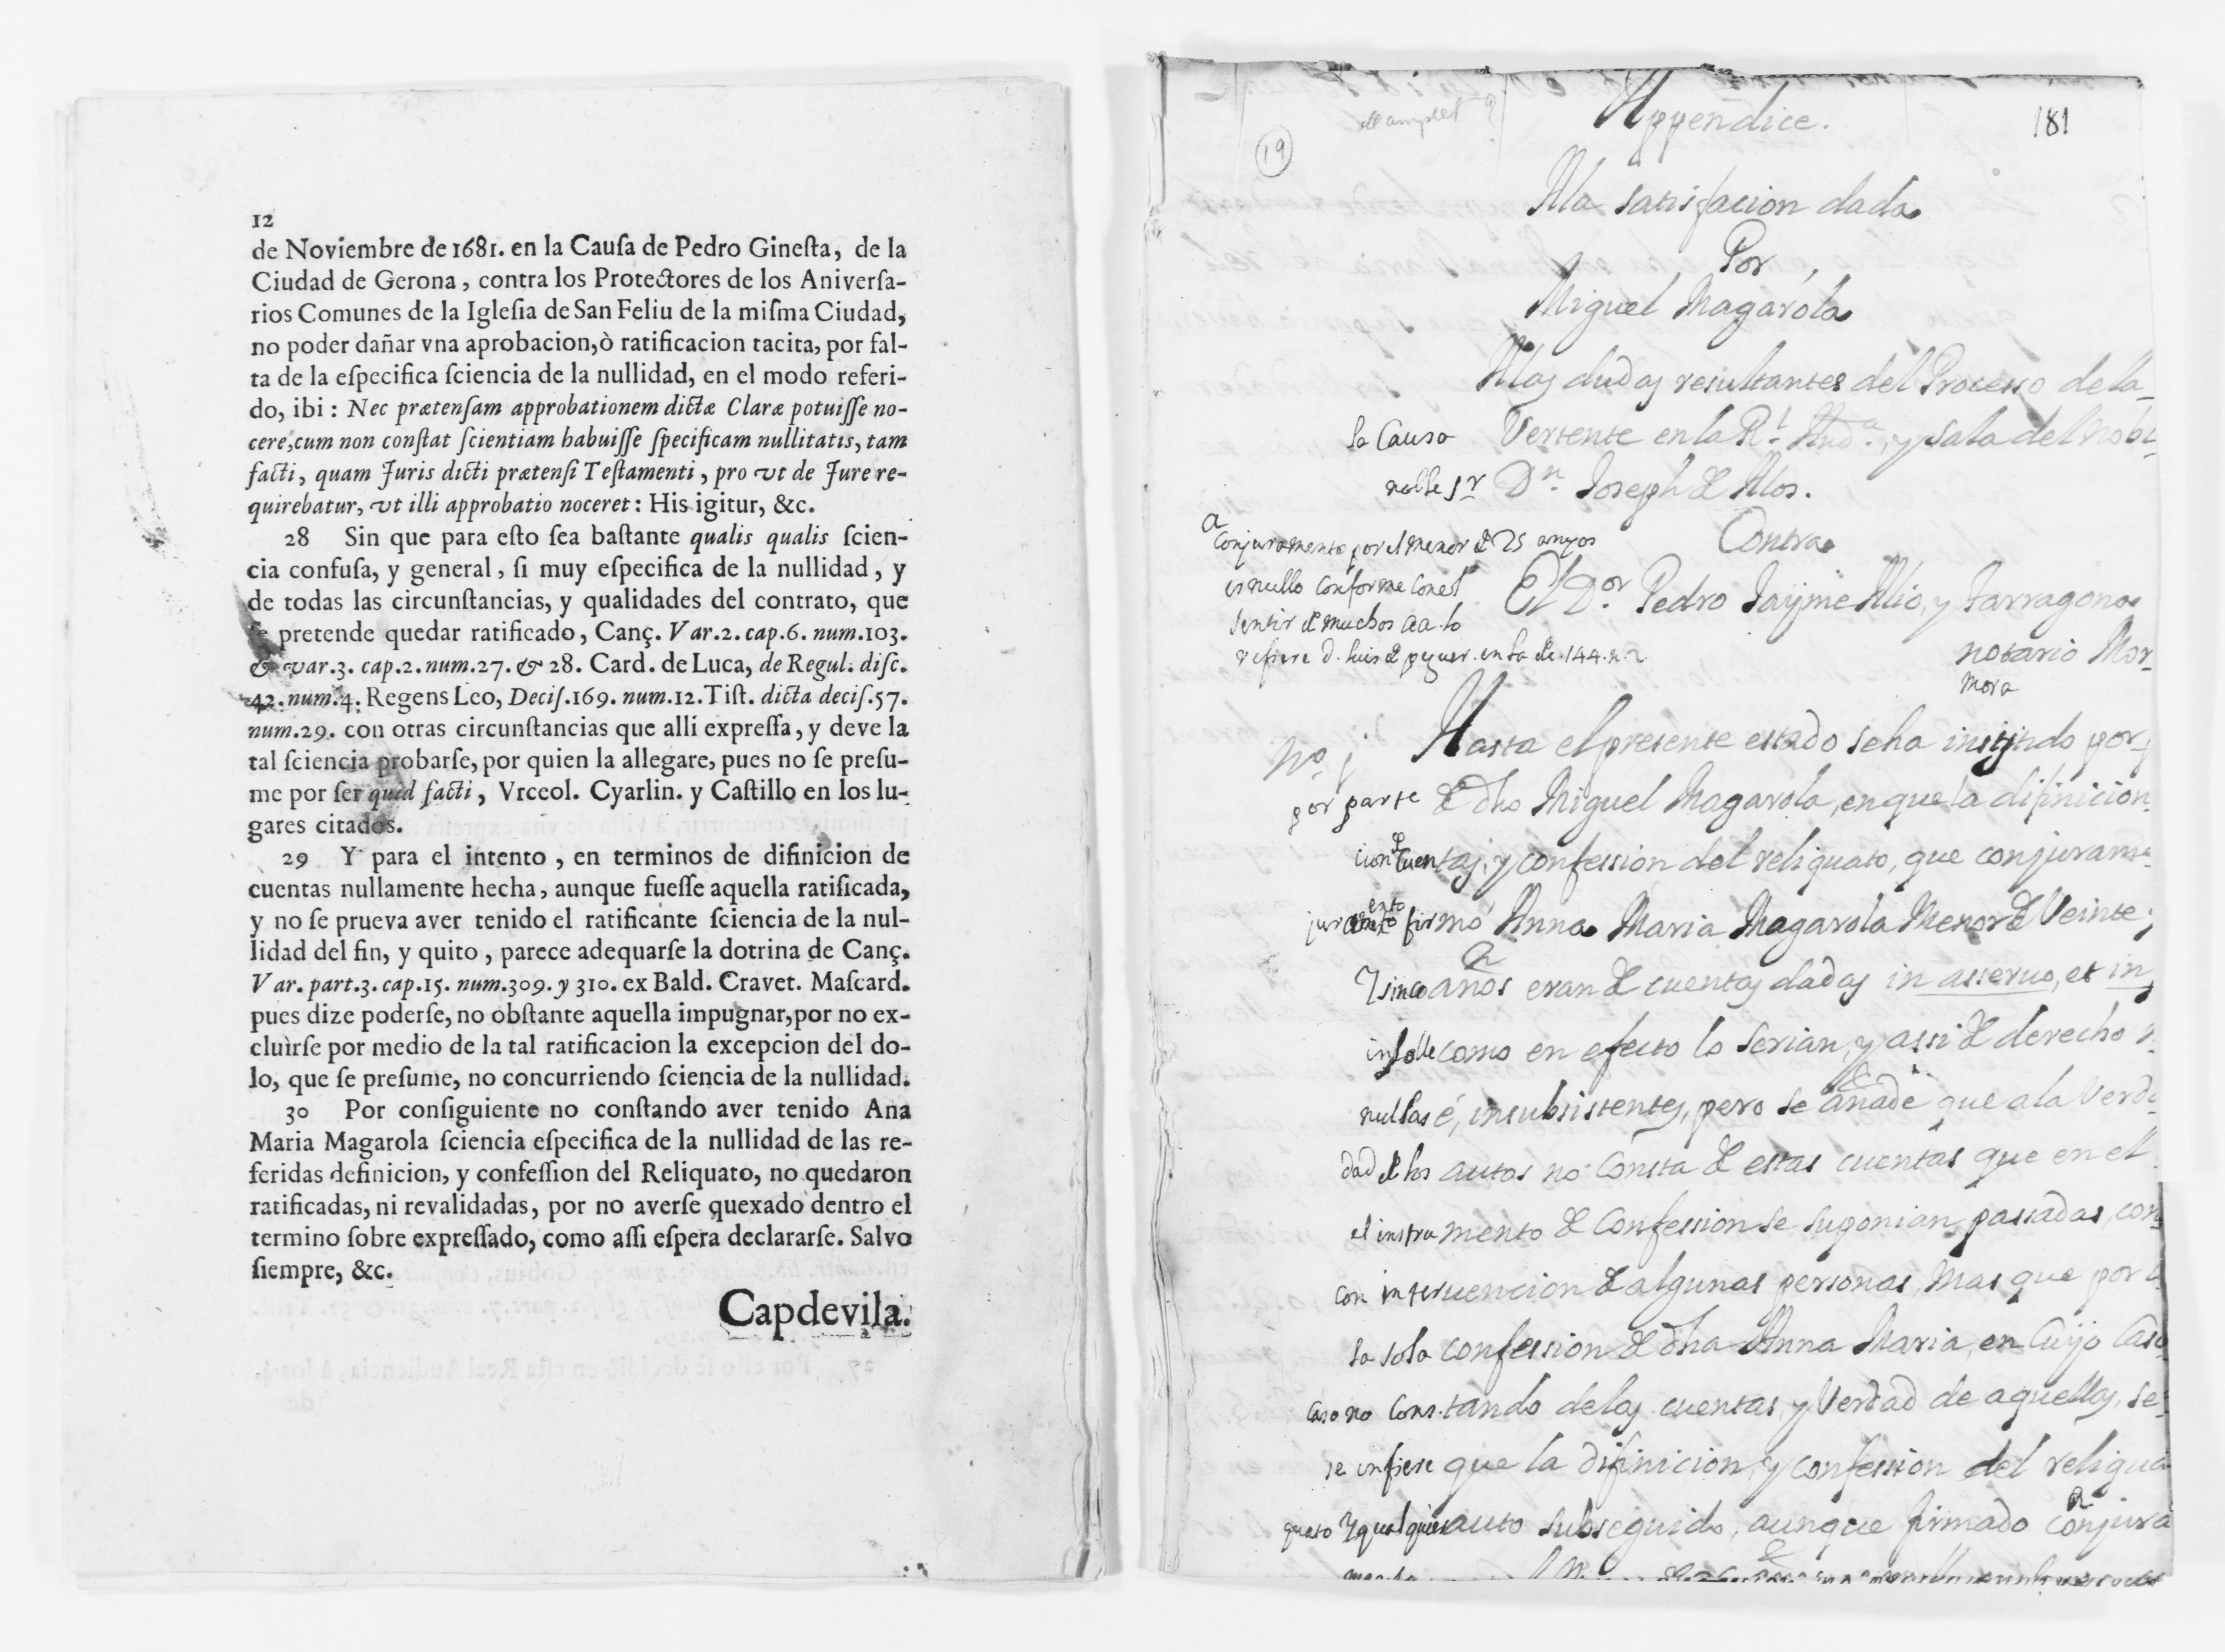 12
de Noviembre de 1681. en la Cauſa de Pedro Gineſta, de la
Ciudad de Gerona, contra los Protectores de los Aniverſa-
rios Comunes de la Igleſia de San Feliu de la miſma Ciudad,
no poder dañar vna aprobacion, ò ratificacion tacita, por fal-
ta de la eſpecifica ſciencia de la nullidad, en el modo referi-
do, ibi: Nec prætenſam approbationem dictæ Claræ potuiſſe no-
cere, cum non conſtat ſcientiam habuiſſe ſpecificam nullitatis, tam
facti, quam Juris dicti prætenſi Teſtamenti, pro vt de Jure re-
quirebatur, vt illi approbatio noceret: His igitur, &c.
28 Sin que para eſto ſea baſtante qualis qualis ſcien-
cia confuſa, y general, ſi muy eſpecifica de la nullidad, y
de todas las circunſtancias, y qualidades del contrato, que
ſe pretende quedar ratificado, Canç. Var.2. cap.6. num.103.
& var.3. cap.2. num.27. & 28. Card. de Luca, de Regul. diſc.
42. num.4. Regens Leo, Deciſ.169. num.12. Tiſt. dicta deciſ.57.
num.29. con otras circunſtancias que alli expreſſa, y deve la
tal ſciencia probarſe, por quien la allegare, pues no ſe preſu-
me por ſer quid facti, Vrceol. Cyarlin. y Caſtillo en los lu-
gares citados.
29 Y para el intento, en terminos de difinicion de
cuentas nullamente hecha, aunque fueſſe aquella ratificada,
y no ſe prueva aver tenido el ratificante ſciencia de la nul-
lidad del fin, y quito, parece adequarſe la dotrina de Canç.
Var. part.3. cap.15. num.309. y 310. ex Bald. Cravet. Maſcard.
pues dize poderſe, no obſtante aquella impugnar, por no ex-
cluìrſe por medio de la tal ratificacion la excepcion del do-
lo, que ſe preſume, no concurriendo ſciencia de la nullidad.
30 Por conſiguiente no conſtando aver tenido Ana
Maria Magarola ſciencia eſpecifica de la nullidad de las re-
feridas definicion, y confeſſion del Reliquato, no quedaron
ratificadas, ni revalidadas, por no averſe quexado dentro el
termino ſobre expreſſado, como aſſi eſpera declararſe. Salvo
ſiempre, &c.
Capdevila.
Appendice.
181
19
Ala satisfacion dada
Por
Miguel Magarola
Alas dudas resultantes del Processo de la
la Causa Vertente en la Rl. Auda. y sala del Nobi
noble sr Dn. Joseph de Alos.
Contra
a
conjuramento por el menor de 25 anyos
es nullo conforme con el
sentir de muchos aa. lo
refiere d. Luis de peguer. en la de. 144. n. 2
El Dor. Pedro Jayme Alio, y Tarragona
notario Mor
Mora
No. j Hasta el presente estado seha instado por
por parte de dho Miguel Magarola, en que la difinicion
cion de cuentas, y confession del reliquato, que conjurame
juramento firmó Anna Maria Magarola Menor de Veinte y
y sinco años eran de cuentas dadas in asseruo, et in
in folle como en efecto lo serian, y assi de derecho
nullas é, insubsistentes, pero se añade que ala Verda
dad de los autos no Consta de estas cuentas que en el
el instrumento de Confession se suponian passadas, con
con interuencion de algunas personas, mas que por
la sola confession de dha Anna Maria, en Cuyo Caso
Caso no Constando delas cuentas, y Verdad de aquellas, se
se infiere que la difinicion, y confession del reliqua
quato y qualquier auto subseguido, aunque firmado Conjura